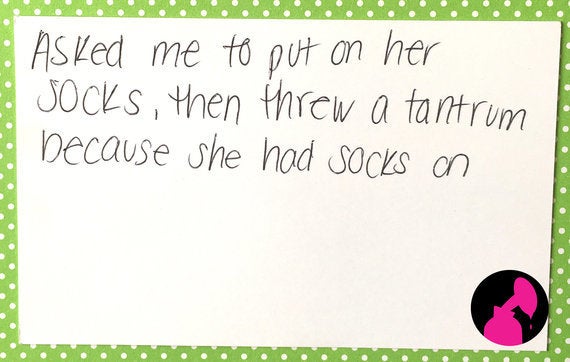 Asked me to put on her
socks, then threw a tantrum
because she had socks on